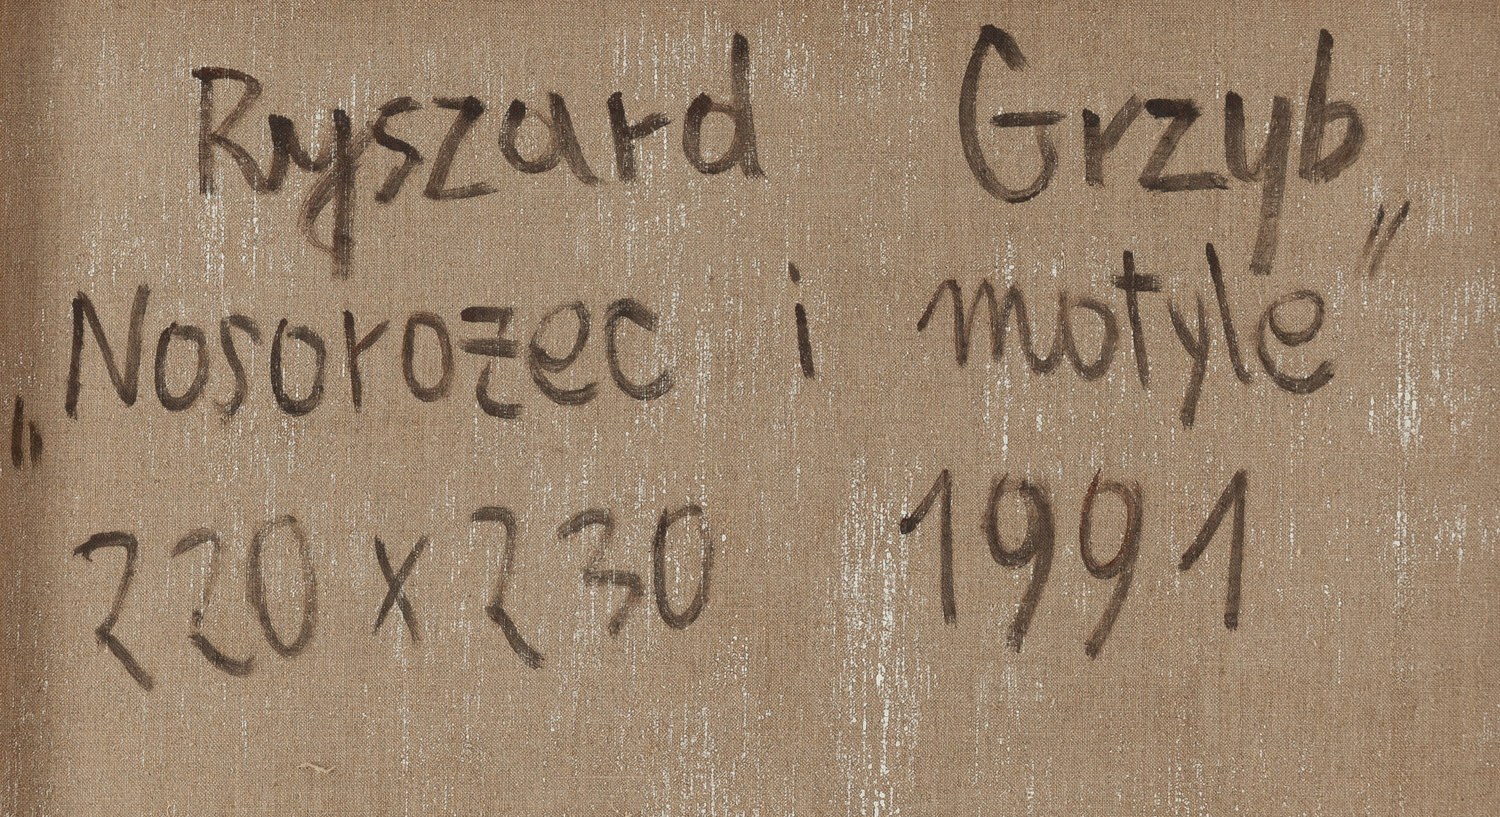 Ryszard Grzyb
„Nosorożec i motyle”
220 x 230 1991